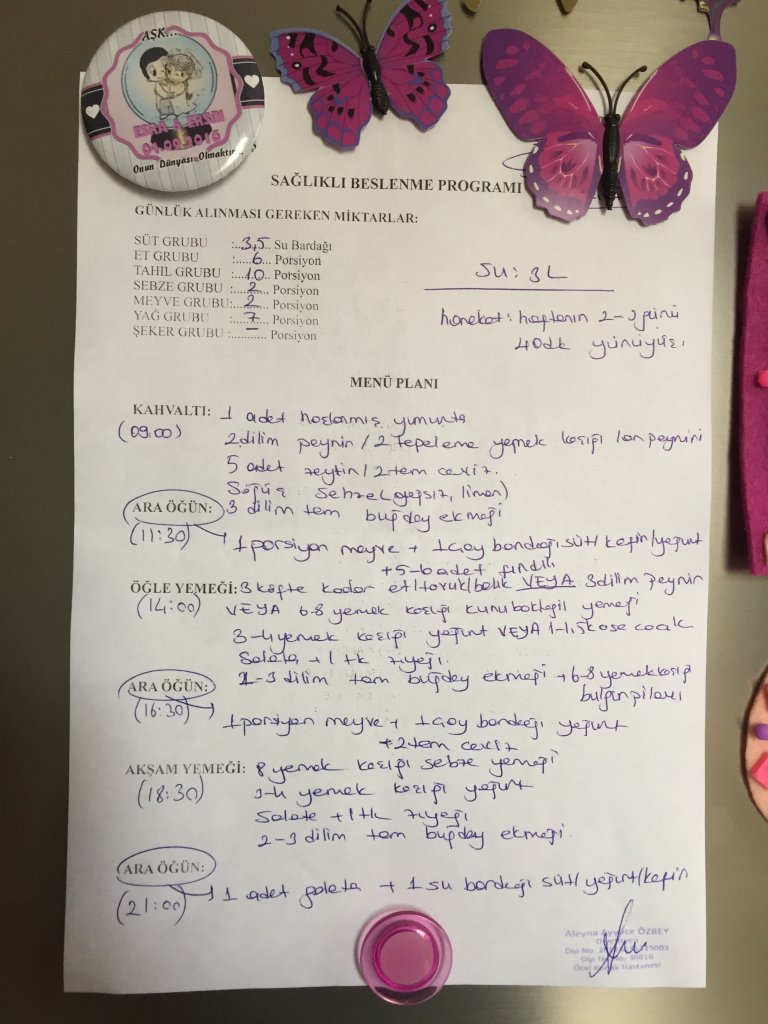 AŞK...
ESRA & ERSİN
04.09.2016
Onun Dünyası Olmaktır
SAĞLIKLI BESLENME PROGRAMI
GÜNLÜK ALINMASI GEREKEN MİKTARLAR:
SÜT GRUBU :..3,5.. Su Bardağı
ET GRUBU :.....6... Porsiyon
TAHIL GRUBU :...10... Porsiyon
SEBZE GRUBU :...2... Porsiyon
MEYVE GRUBU:...2... Porsiyon
YAĞ GRUBU :...7... Porsiyon
ŞEKER GRUBU :...–... Porsiyon
SU : 3L
hareket : haftanın 2-3 günü
40dk yürüyüş.
MENÜ PLANI
KAHVALTI: 1 adet haşlanmış yumurta
(09:00) 2 dilim peynir / 2 tepeleme yemek kaşığı lor peyniri
5 adet zeytin / 2 tam ceviz.
Söğüş sebze (yağsız, limon)
ARA ÖĞÜN: 3 dilim tam buğday ekmeği
(11:30) 1 porsiyon meyve + 1 çay bardağı süt/kefir/yoğurt
+ 5-6 adet fındık
ÖĞLE YEMEĞİ: 3 köfte kadar et/tavuk/balık VEYA 3 dilim peynir
(14:00) VEYA 6-8 yemek kaşığı kurubaklagil yemeği
3-4 yemek kaşığı yoğurt VEYA 1-1,5 kase cacık
Salata + 1 tk z.yağı.
2-3 dilim tam buğday ekmeği + 6-8 yemek kaşığı
bulgur pilavı
ARA ÖĞÜN:
(16:30) 1 porsiyon meyve + 1 çay bardağı yoğurt
+ 2 tam ceviz
AKŞAM YEMEĞİ: 8 yemek kaşığı sebze yemeği
(18:30) 3-4 yemek kaşığı yoğurt
Salata + 1 tk z.yağı
2-3 dilim tam buğday ekmeği.
ARA ÖĞÜN:
(21:00) 1 adet galeta + 1 su bardağı süt/yoğurt/kefir
ÖZBEY
Dip No:
Dip No: 30816
Özel Hastanesi